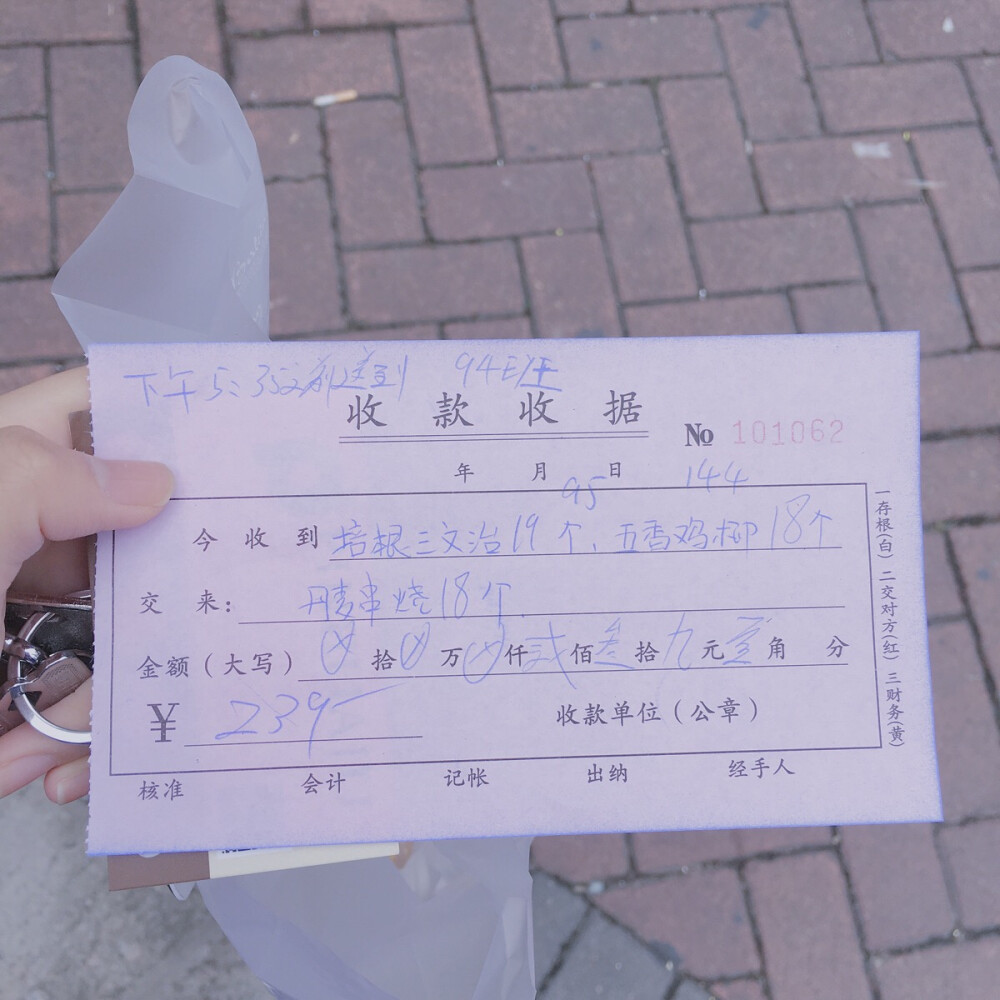 下午5:35前送到 94E座
收款收据
№ 101062
年 月 日
95 144
今收到 培根三文治19个、五香鸡柳18个
交来: 丹麦串烧18个
金额(大写) 拾 万 仟贰佰叁拾九元 角 分
¥ 239
收款单位(公章)
核准 会计 记帐 出纳 经手人
一存根(白) 二交对方(红) 三财务(黄)